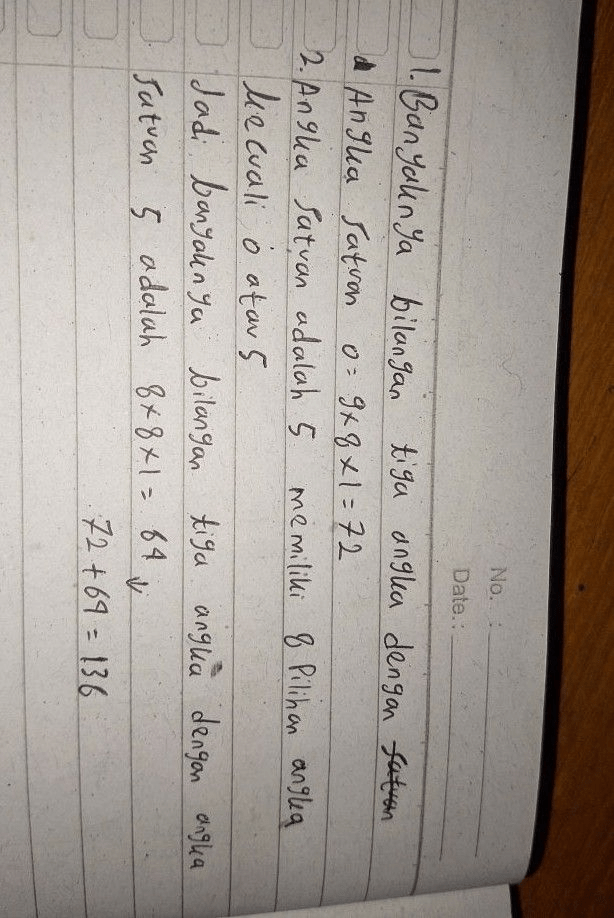 No. :
Date. :
1. Banyaknya bilangan tiga angka dengan satuan
Angka satuan 0 = 9 x 8 x 1 = 72
2. Angka satuan adalah 5 memiliki 8 Pilihan angka
kecuali 0 atau 5
Jadi, banyaknya bilangan tiga angka dengan angka
satuan 5 adalah 8 x 8 x 1 = 64 ↓
72 + 64 = 136